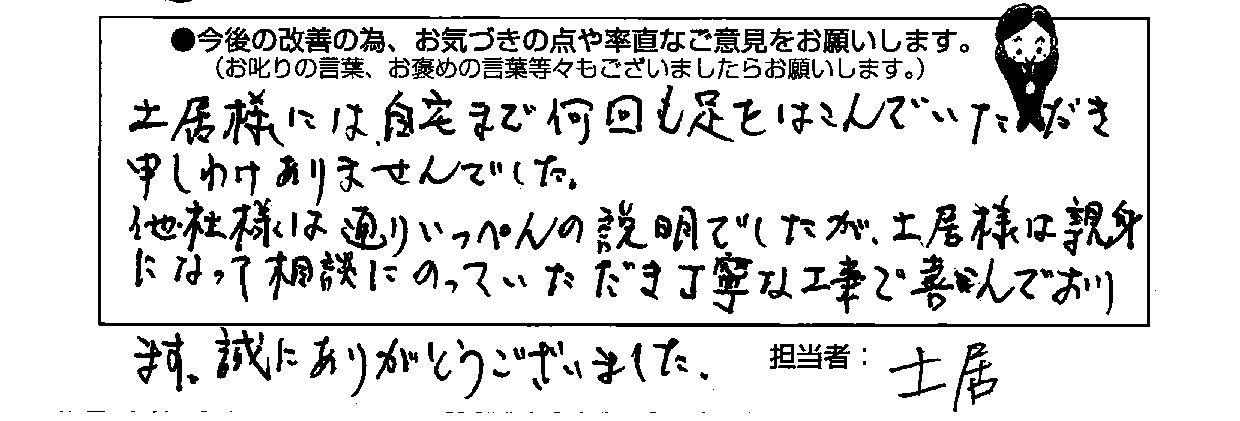 ●今後の改善の為、お気づきの点や率直なご意見をお願いします。
（お叱りの言葉、お褒めの言葉等々もございましたらお願いします。）
土居様には自宅まで何回も足をはこんでいただき
申しわけありませんでした。
他社様は通りいっぺんの説明でしたが、土居様は親身
になって相談にのっていただき丁寧な工事で喜んでおり
ます。誠にありがとうございました。
担当者：土居